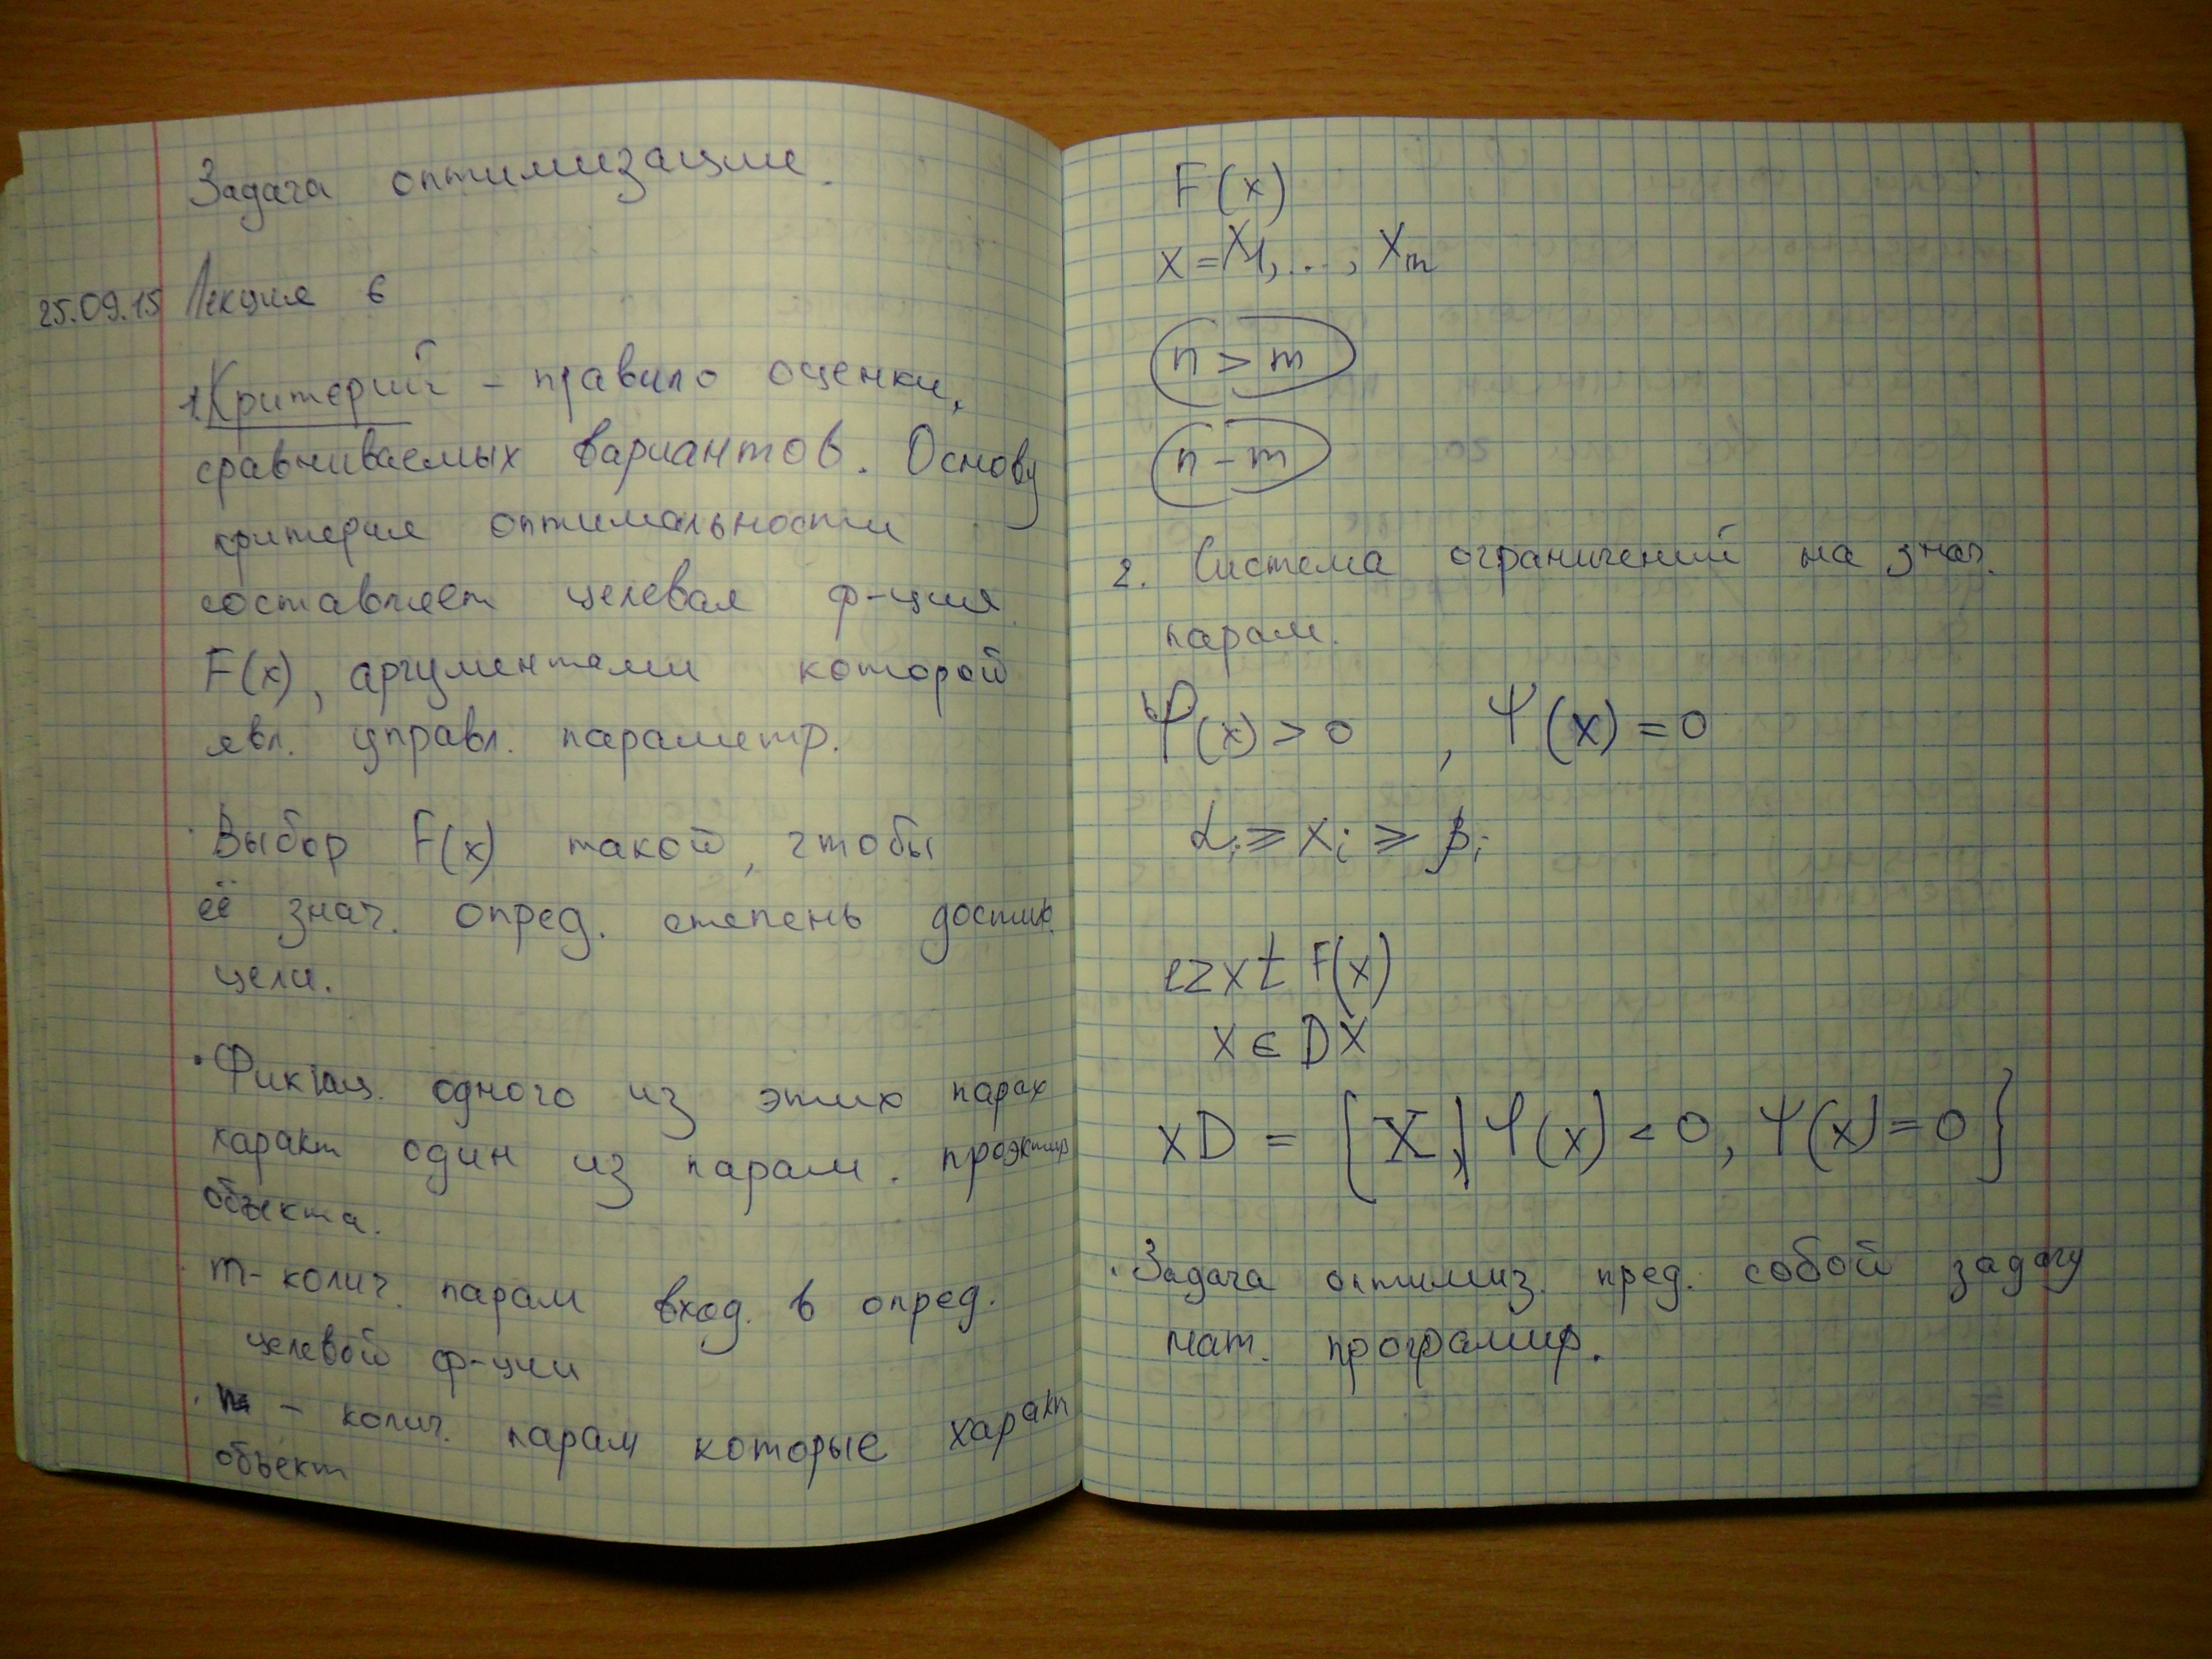 Задача оптимизации.
25.09.15 Лекция 6
1. Критерий – правило оценки,
сравниваемых вариантов. Основу
критерия оптимальности
составляет целевая ф-ция
F(x), аргументами которой
явл. управл. параметр.
Выбор F(x) такой, чтобы
её знач. опред. степень достиж.
цели.
· одного из этих парах
характ один из парам. проэктир
объекта.
m - колич. парам вход. в опред.
целевой ф-ции
· n - колич. парам которые характ
объект
F(x)
x = x1, ..., xm
n > m
n - m
2. Система ограничений на знач.
парам.
φ(x) > 0 , ψ(x) = 0
αi ≥ xi ≥ βi
ezxt F(x)
x ∈ DX
xD = {X | φ(x) < 0, ψ(x) = 0}
· Задача оптимиз. пред. собой задачу
мат. програмир.